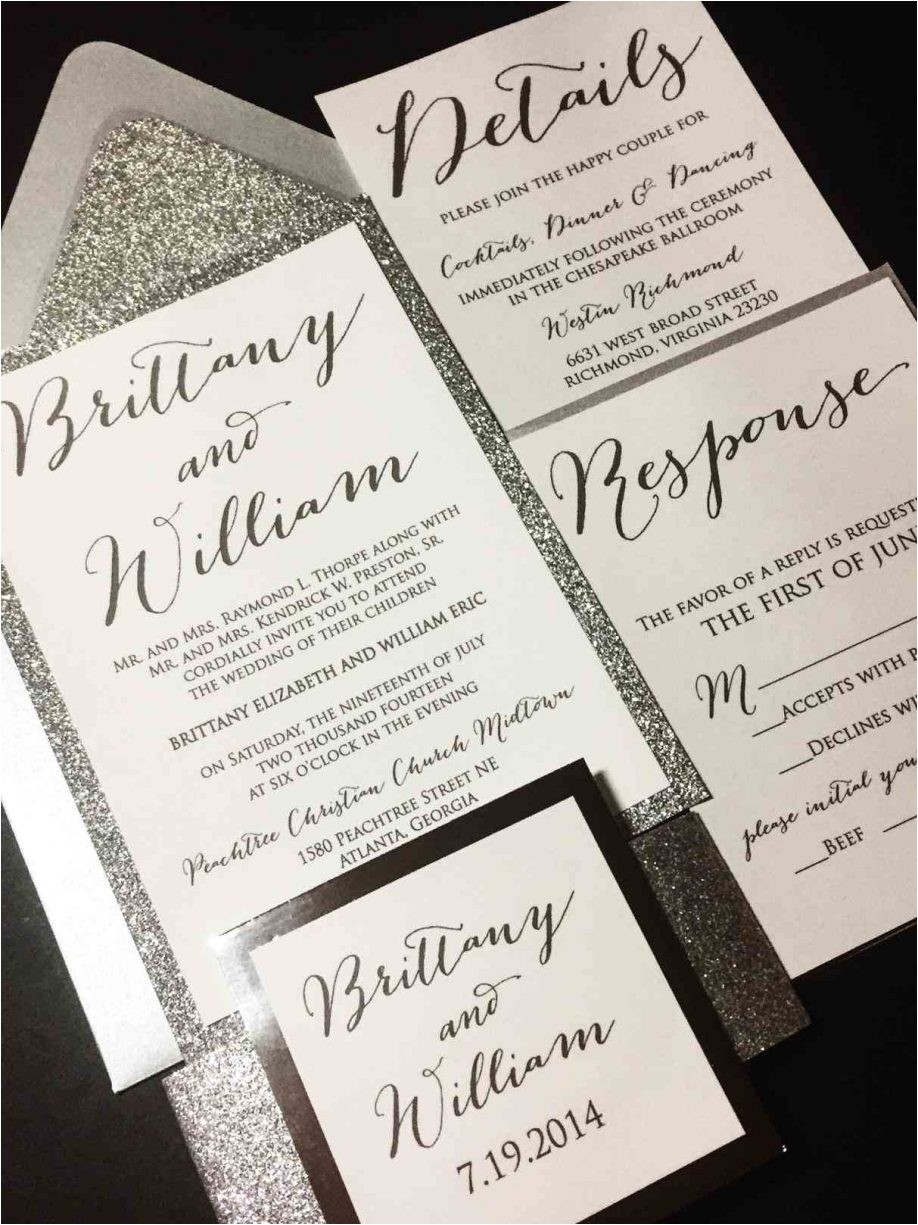 Details
PLEASE JOIN THE HAPPY COUPLE FOR
Cocktails, Dinner & Dancing
IMMEDIATELY FOLLOWING THE CEREMONY
IN THE CHESAPEAKE BALLROOM
Westin Richmond
6631 WEST BROAD STREET
RICHMOND, VIRGINIA 23230
Brittany
and
William
MR. AND MRS. RAYMOND L. THORPE ALONG WITH
MR. AND MRS. KENDRICK W. PRESTON, SR.
CORDIALLY INVITE YOU TO ATTEND
THE WEDDING OF THEIR CHILDREN
BRITTANY ELIZABETH AND WILLIAM ERIC
ON SATURDAY, THE NINETEENTH OF JULY
TWO THOUSAND FOURTEEN
AT SIX O'CLOCK IN THE EVENING
Peachtree Christian Church Midtown
1580 PEACHTREE STREET NE
ATLANTA, GEORGIA
Response
THE FAVOR OF A REPLY IS REQUEST
THE FIRST OF JUN
M
ACCEPTS WITH
DECLINES WI
please initial you
BEEF
Brittany
and
William
7.19.2014